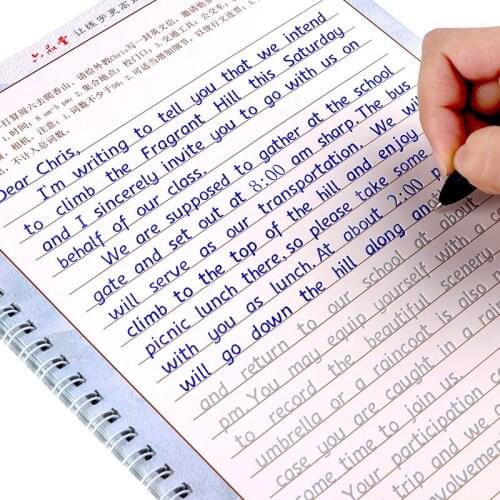 六品堂 让练字更高效
打算周六去爬香山,请给外教Chris写一封英文信,邀请他
1.时间:8 am~2 pm;2.集合地点:校门口;3.交通工具:公交车;
相机;注意:1.词数不少于50;2.可适当增加细节,以使行文连贯;3.
不计入总词数。
Dear Chris,
I'm writing to tell you that we intend
to climb the Fragrant Hill this Saturday
and I sincerely invite you to go with us on
behalf of our class.
We are supposed to gather at the school
gate and set out at 8:00 am sharp. The bus
will serve as our transportation. We will
climb to the top of the hill and enjoy
picnic lunch there, so please take some
with you as lunch. At about 2:00 p
will go down the hill along ano
and return to our school at about
pm. You may equip yourself with a
to record the beautiful scenery
umbrella or a raincoat is also
case you are caught in a rain
some time to join us.
Your participation
trip and we
volvement